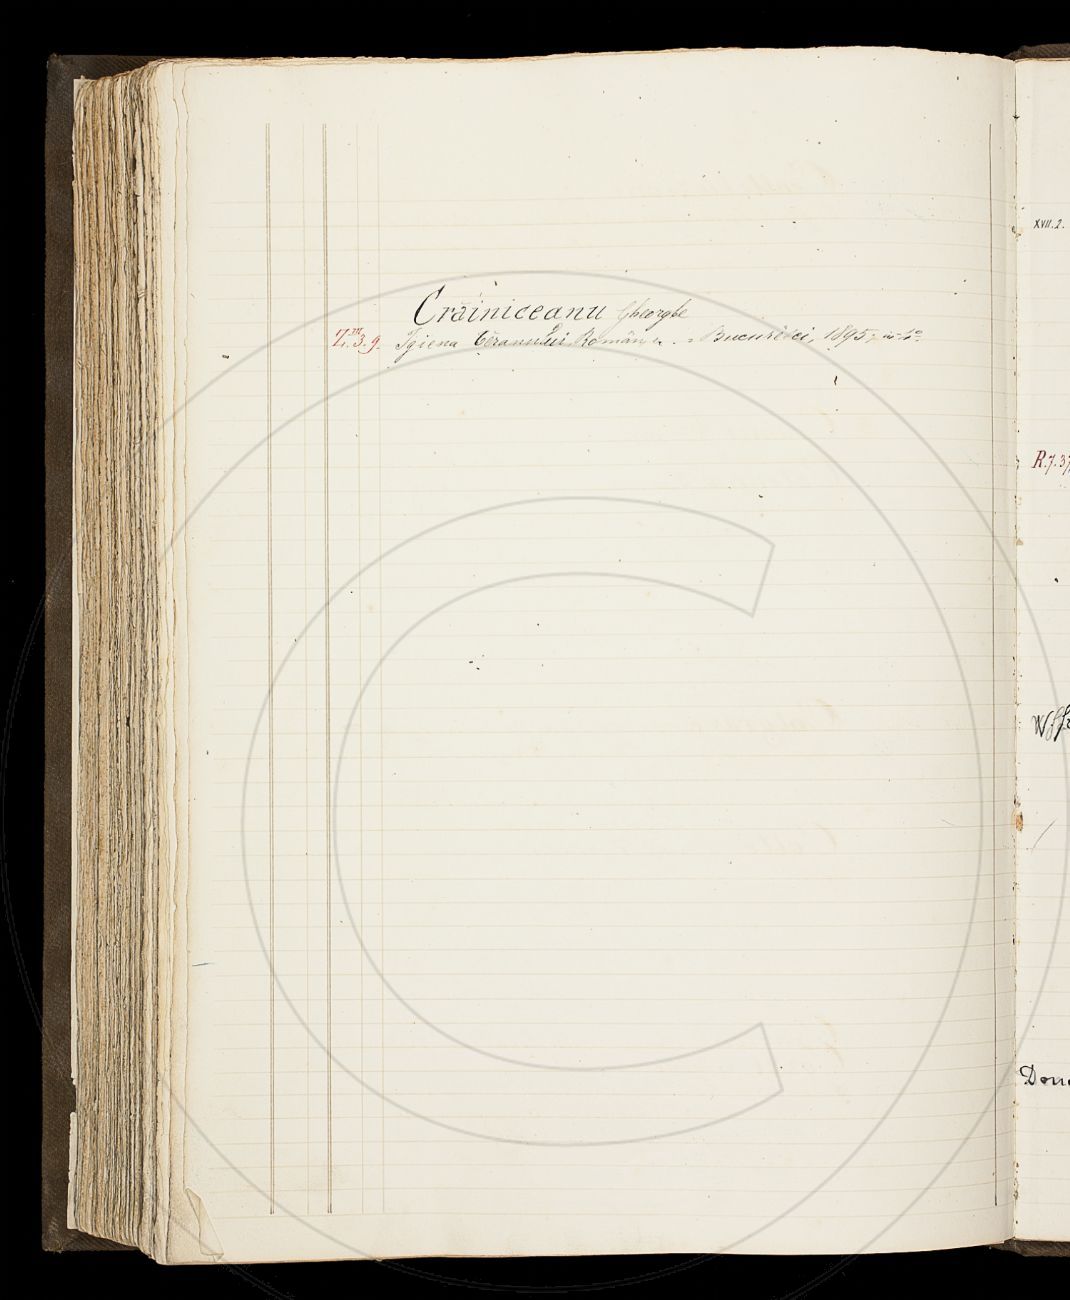 Crăiniceanu Gheorghe
Igiena Țĕranului Român. - Bucuresci, 1895; in-4º.
XVII.2.
R.7.37